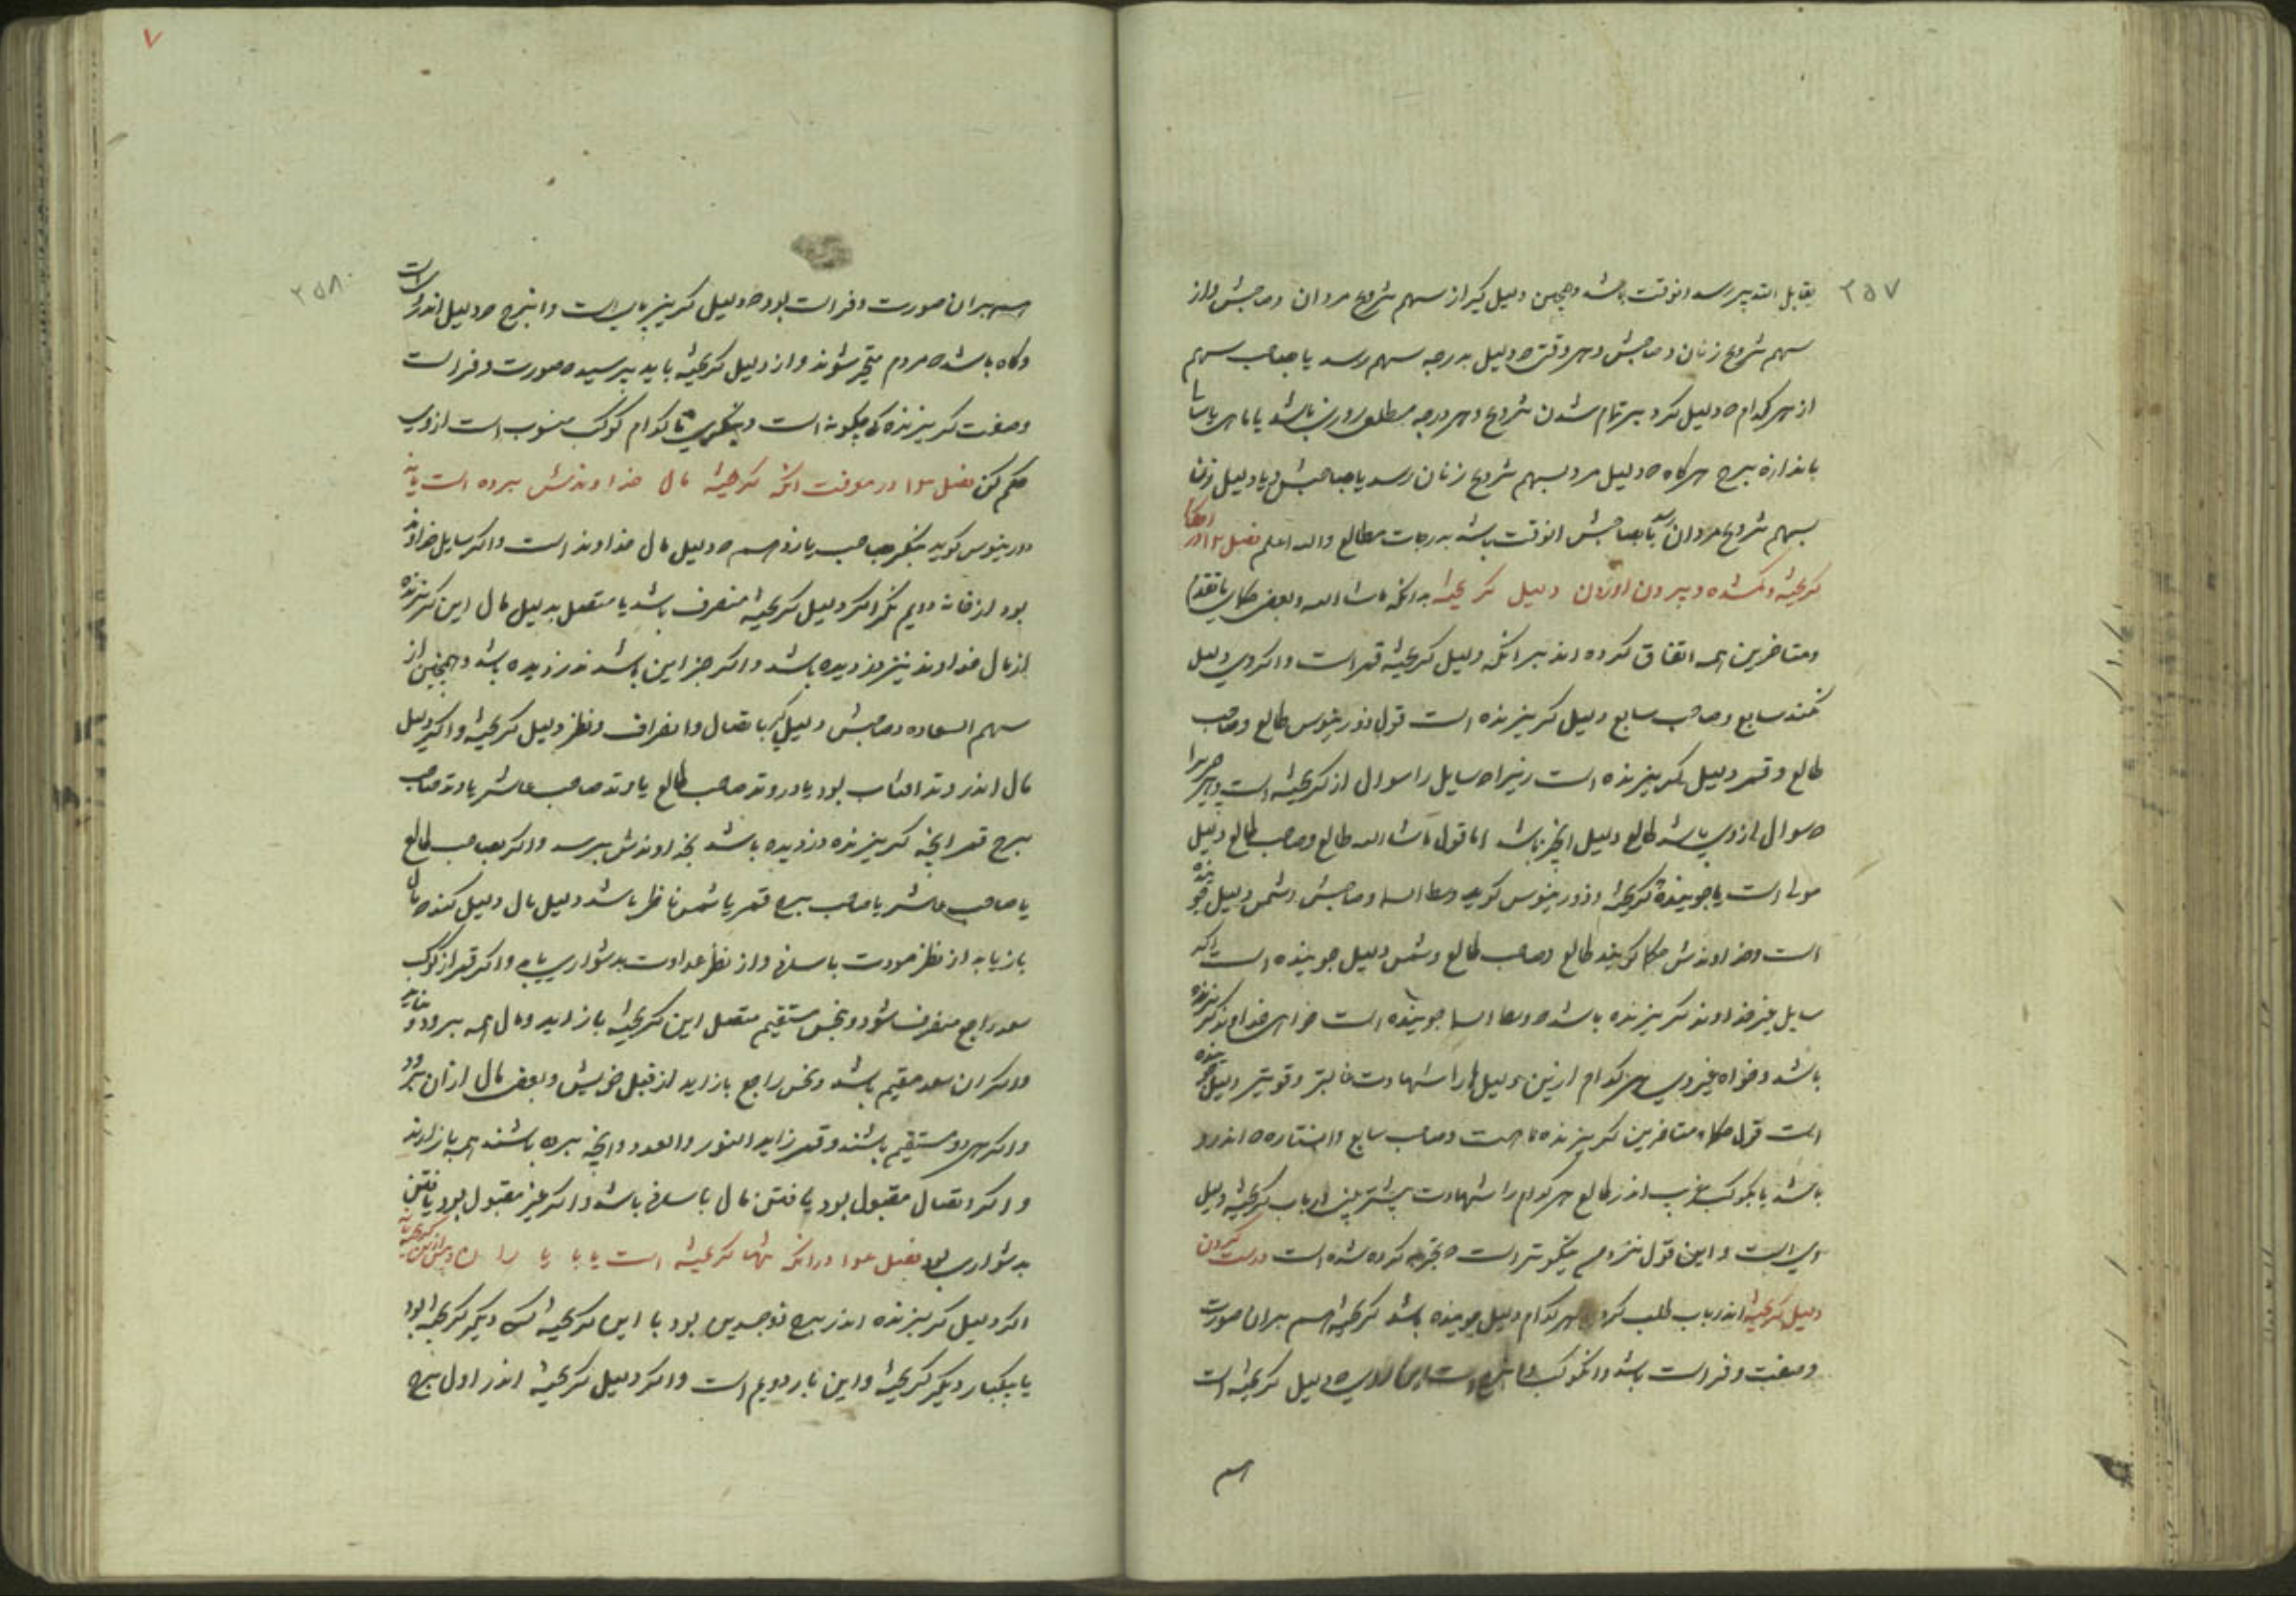 ۲۵۷
سهم شروع زنان و صاحبش و هر وقت که دلیل بدرجه سهم رسد یا بصاحب سهم
از هر کدام که دلیل کرد بر تمام شدن شروع و هر درجه مطلع
باندازه برج هر گاه که دلیل مرد بسهم شروع زنان رسد یا بصاحبش و یا دلیل زنان
بسهم شروع مردان رسد یا بصاحبش انوقت باشد بدرجات مطالع والله اعلم فصل
کریخته و کمشده و بیرون اوردن دلیل کریخته بدانکه ماشاالله و بعضی حکمای
و متاخرین همه اتفاق کرده اند بر انکه دلیل کریخته قمر است و اکر وی دلیل
نکند سابع و صاحب سابع دلیل کریزنده است قول ذورینوس طالع و صاحب
طالع و قمر دلیل کریزنده است زیرا که سایل را سوال از کریخته است
که سوال از وی باشد طالع دلیل انچیز باشد اما قول ماشاالله طالع و صاحب طالع دلیل
مولی است یا جوینده کریخته و ذورینوس کوید وسط السما و صاحبش و شمس دلیل جوینده
است و خداوندش حکما کویند طالع و صاحب طالع و شمس دلیل جوینده است
سایل غیر خداوند کریزنده باشد که وسط السما جوینده است خواهی خداوند کریزنده
باشد و خواه غیر وی هر کدام ازین دلیل ها را شهادت غالبتر و قویتر دلیل جوینده
است قول حکماء متاخرین کریزنده
باشد یا بکوکب غریب اندر طالع هر کدام را شهادت بیشتر
وی است و این قول نزدهم نیکوتر است که تجربه کرده شده است درست کردن
دلیل کریخته اندر باب طلب کرد هر کدام دلیل جوینده باشد کریخته هم بران صورت
و صفت و فراست باشد و انکوکب دلیل کریخته است
هم
۷
۲۵۸
هم بران صورت و فراست بود که دلیل کریز پای است و ان برج که دلیل اندر
است
وکاه باشد که مردم متحیر شوند و از دلیل کریخته باید پرسید که صورت و فراست
وصفت کریزنده که چکونه است و بنکری تا کدام کوکب منسوب است از وی
حکم کن فصل ۱۳ در معرفت انکه کریخته مال خداوندش برده است یا نه
ذورینوس کوید بنکر بصاحب یازدهم که دلیل مال خداوند است و اکر سایل خداوند
بود از خانه دویم نکر اکر دلیل کریخته منصرف باشد یا متصل بدلیل مال این کریزنده
از مال خداوند نیز دزدیده باشد و اکر جز این باشد ندزدیده باشد و همچنین از
سهم السعاده و صاحبش دلیل کیر باتصال و انصراف و نظر دلیل کریخته و اکر دلیل
مال اندر وتد افتاب بود یا در وتد صاحب طالع یا وتد صاحب عاشر یا وتد صاحب
برج قمر انچه کریزنده دزدیده باشد بخداوندش برسد و اکر بصاحب طالع
یا صاحب عاشر یا صاحب برج قمر یا شمس ناظر باشد دلیل مال دلیل کند که مال
باز یابد از نظر مودت باسانی و از نظر عداوت بدشواری یابی و اکر قمر از کوکب
سعد راجع منصرف شود و بنحس مستقیم متصل این کریخته باز اید و مال همه ببرد
و اکر ان سعد مستقیم باشد و نحس راجع باز اید از قبل خویش و بعض مال از ان ببرد
و اکر هر دو مستقیم باشند و قمر زاید النور و العدد و انچه برده باشند همه باز ارند
و اکر اتصال مقبول بود یا فتن مال باسانی باشد و اکر غیر مقبول بود یافتن
بدشواری بود فصل ۱۴ در انکه تنها کریخته است یا با یاران و پیش ازین کریخته یا نه
اکر دلیل کریزنده اندر برج ذوجسدین بود با این کریخته کس دیکر کریخته بود
یا یکبار دیکر کریخته و این بار دویم است و اکر دلیل کریخته اندر اول برج